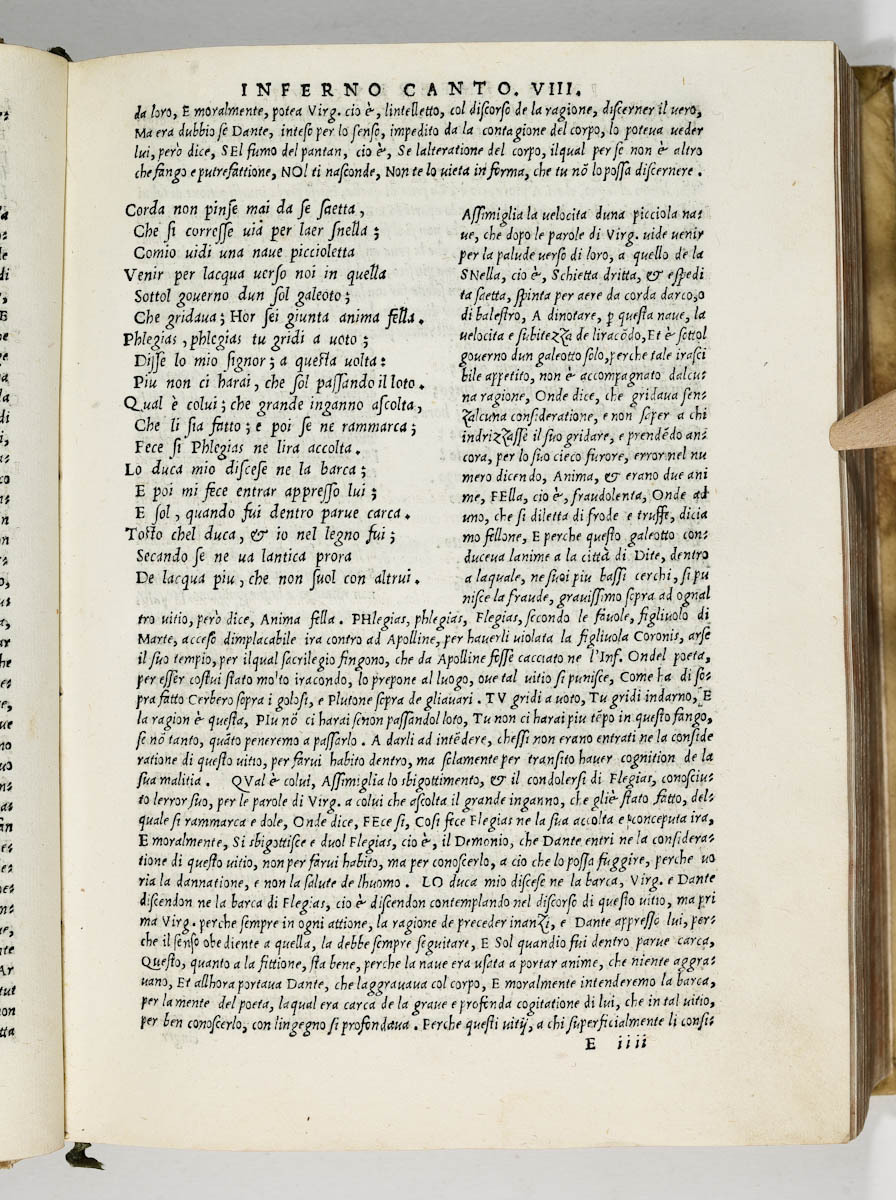 INFERNO CANTO. VIII.
da loro, E moralmente, potea Virg. cio è, lintelletto, col discorso de la ragione, discerner il uero,
Ma era dubbio se Dante, inteso per lo senso, impedito da la contagione del corpo, lo poteua ueder
lui, però dice, SEl fumo del pantan, cio è, Se lalteratione del corpo, ilqual per se non è altro
che fango e putrefattione, NOl ti nasconde, Non te lo uieta in forma, che tu nõ lo possa discernere.
Corda non pinse mai da se saetta,
Che si corresse uia per laer snella;
Comio uidi una naue piccioletta
Venir per lacqua uerso noi in quella
Sottol gouerno dun sol galeoto;
Che gridaua; Hor sei giunta anima fella.
Phlegias, phlegias tu gridi a uoto;
Disse lo mio signor; a questa uolta:
Piu non ci harai, che sol passando il loto.
Qual è colui; che grande inganno ascolta,
Che li sia fatto; e poi se ne rammarca;
Fece si Phlegias ne lira accolta.
Lo duca mio discese ne la barca;
E poi mi fece entrar appresso lui;
E sol, quando fui dentro parue carca.
Tosto chel duca, & io nel legno fui;
Secando se ne ua lantica prora
De lacqua piu, che non suol con altrui.
Assimiglia la uelocita duna picciola na=
ue, che dopo le parole di Virg. uide uenir
per la palude uerso di loro, a quello de la
SNella, cio è, Schietta dritta, & espedi
ta saetta, spinta per aere da corda darco, o
di balestro, A dinotare, ꝑ questa naue, la
uelocita e subitezza de liracõdo, Et è sottol
gouerno dun galeotto solo, perche tale irasci
bile appetito, non è accompagnato dalcu=
na ragione, Onde dice, che gridaua sen=
zalcuna consideratione, e non saper a chi
indrizzasse il suo gridare, e prendẽdo an=
cora, per lo suo cieco furore, error nel nu
mero dicendo, Anima, & erano due ani
me, FElla, cio è, fraudolenta, Onde ad
uno, che si diletta di frode e truffe, dicia
mo fellone, E perche questo galeotto con=
duceua lanime a la città di Dite, dentro
a laquale, ne suoi piu bassi cerchi, si pu
nisce la fraude, grauissimo sopra ad ognal
tro uitio, però dice, Anima fella. PHlegias, phlegias, Flegias, secondo le fauole, figliuolo di
Marte, acceso dimplacabile ira contro ad Apolline, per hauerli uiolata la figliuola Coronis, arse
il suo tempio, per ilqual sacrilegio fingono, che da Apolline fosse cacciato ne l'Inf. Ondel poeta,
per esser costui stato molto iracondo, lo prepone al luogo, oue tal uitio si punisce, Come ha di so=
pra fatto Cerbero sopra i golosi, e Plutone sopra de gliauari. TV gridi a uoto, Tu gridi indarno, E
la ragion è questa, PIu nõ ci harai senon passandol loto, Tu non ci harai piu tẽpo in questo fango,
se nõ tanto, quãto peneremo a passarlo. A darli ad intẽdere, chessi non erano entrati ne la conside
ratione di questo uitio, per farui habito dentro, ma solamente per transito hauer cognition de la
sua malitia. QVal è colui, Assimiglia lo sbigottimento, & il condolersi di Flegias, conosciu=
to lerror suo, per le parole di Virg. a colui che ascolta il grande inganno, che gliè stato fatto, del=
quale si rammarca e dole, Onde dice, FEce si, Cosi fece Flegias ne la sua accolta e conceputa ira,
E moralmente, Si sbigottisce e duol Flegias, cio è, il Demonio, che Dante entri ne la considera=
tione di questo uitio, non per farui habito, ma per conoscerlo, a cio che lo possa fuggire, perche uo
ria la dannatione, e non la salute de lhuomo. LO duca mio discese ne la barca, Virg. e Dante
discendon ne la barca di Flegias, cio è discendon contemplando nel discorso di questo uitio, ma pri
ma Virg. perche sempre in ogni attione, la ragione de preceder inanzi, e Dante appresso lui, per=
che il senso obediente a quella, la debbe sempre seguitare, E Sol quandio fui dentro parue carca,
Questo, quanto a la fittione, sta bene, perche la naue era usata a portar anime, che niente aggra=
uano, Et allhora portaua Dante, che laggrauaua col corpo, E moralmente intenderemo la barca,
per la mente del poeta, laqual era carca de la graue e profonda cogitatione di lui, che in tal uitio,
per ben conoscerlo, con lingegno si profondaua. Perche questi uitij, a chi superficialmente li consi=
E iiii